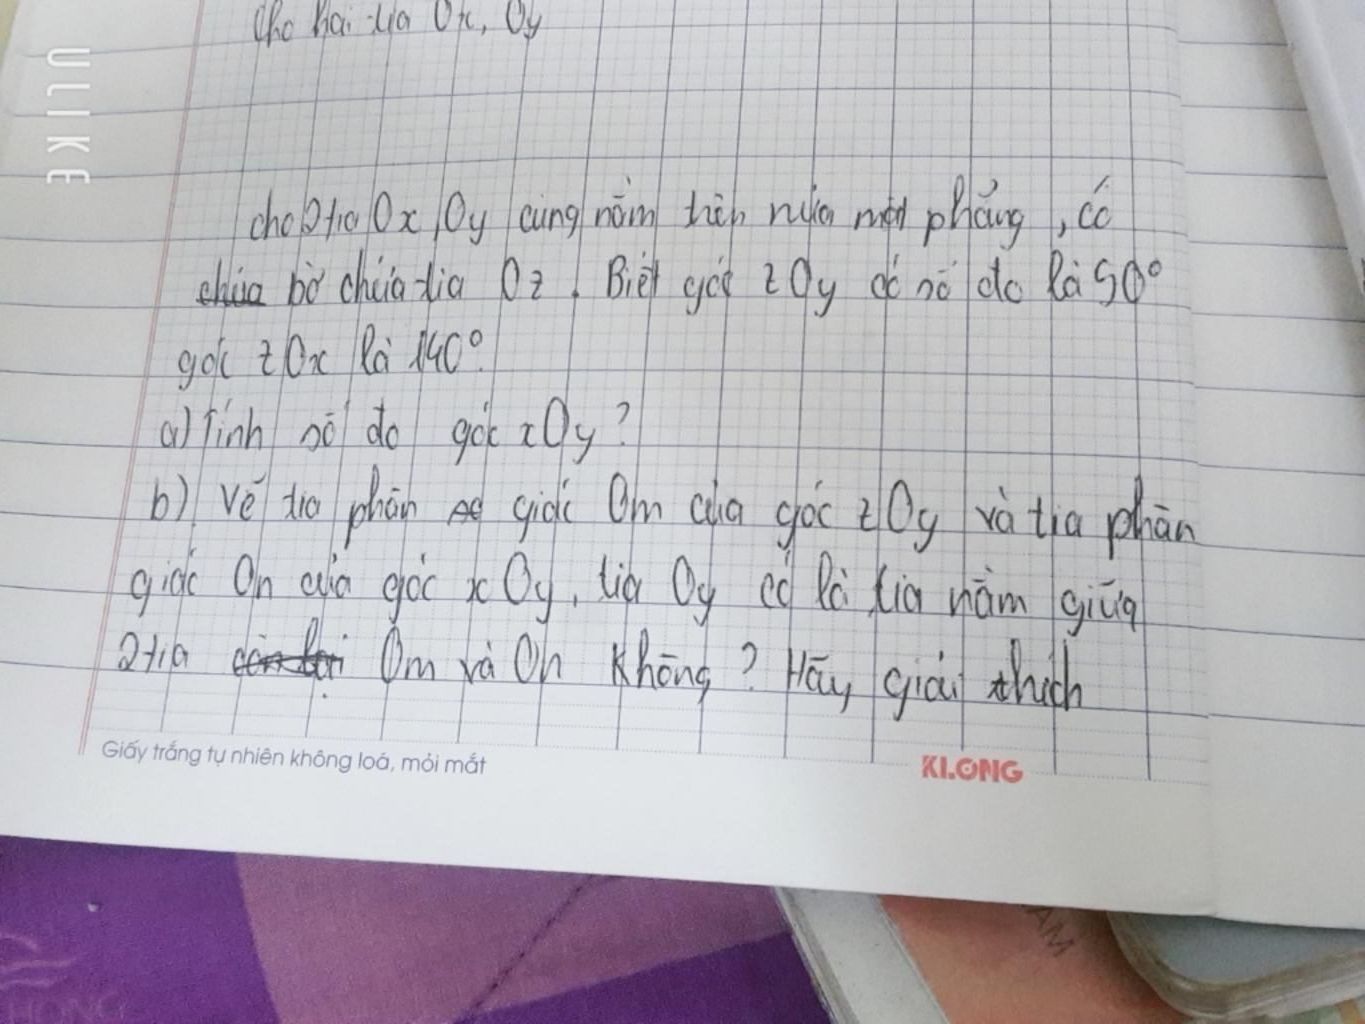 Cho hai tia Ox, Oy
ULIKE
cho 2 tia Ox, Oy cùng nằm trên nửa mặt phẳng, có
chứa bờ chứa tia Oz. Biết góc zOy có số đo là 50°
góc zOx là 140°.
a) Tính số đo góc xOy?
b) Vẽ tia phân giác Om của góc zOy và tia phân
giác On của góc xOy, tia Oy có là tia nằm giữa
2 tia Om và On không? Hãy giải thích
Giấy trắng tự nhiên không loá, mỏi mắt
KLONG
HONG